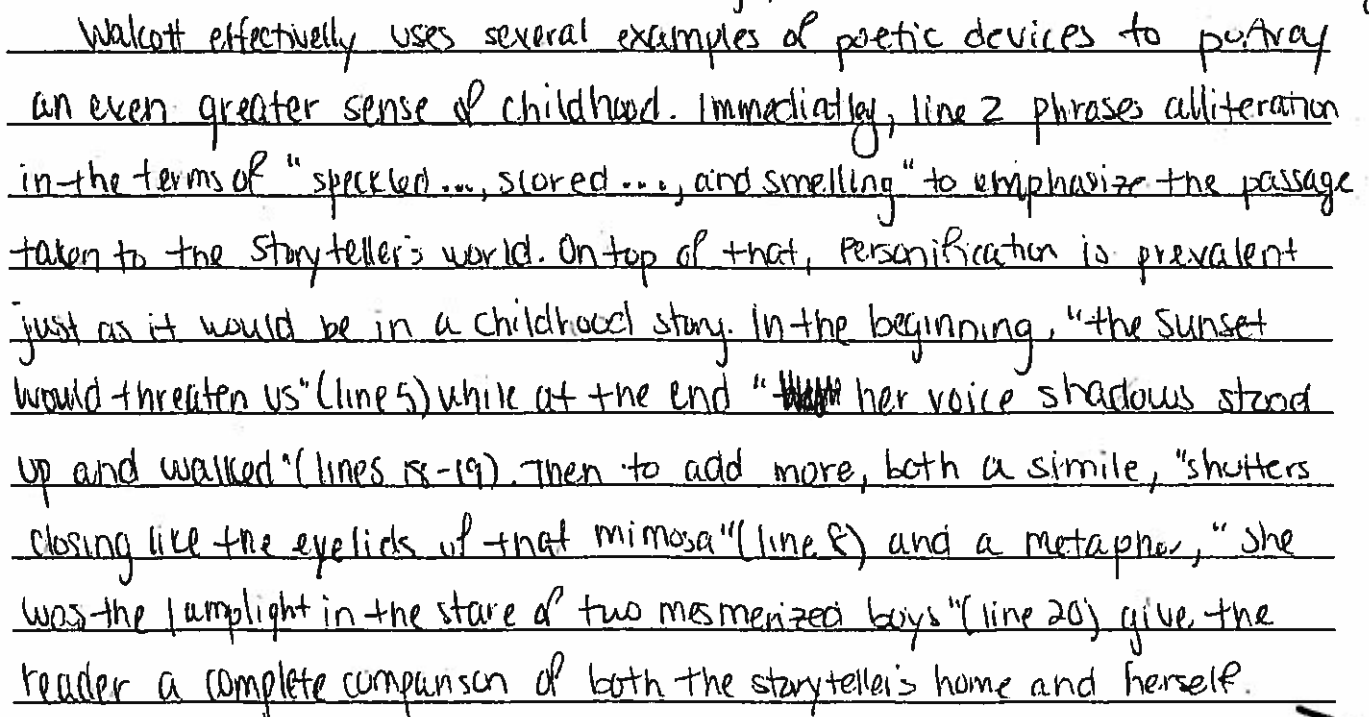 Walcott effectivelly uses several examples of poetic devices to portray
an even greater sense of childhood. Immediatley, line 2 phrases alliteration
in the terms of "speckled..., scored..., and smelling" to emphasize the passage
taken to the storyteller's world. On top of that, personification is prevalent
just as it would be in a childhood story. In the beginning, "the sunset
would threaten us" (line 5) while at the end " her voice shadows stood
up and walked" (lines 18-19). Then to add more, both a simile, "shutters
closing like the eyelids of that mimosa" (line 8) and a metaphor, "she
was the lamplight in the stare of two mesmerized boys" (line 20) give the
reader a complete comparison of both the storyteller's home and herself.